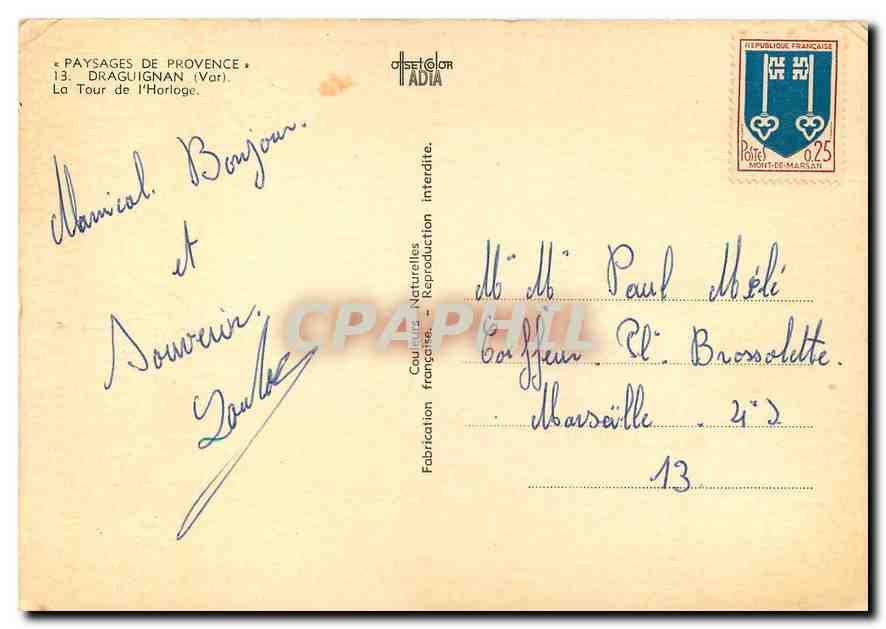 « PAYSAGES DE PROVENCE »
13. DRAGUIGNAN (Var).
La Tour de l'Horloge.
OFFSET COLOR
ADIA
REPUBLIQUE FRANÇAISE
POSTES 0,25
MONT-DE-MARSAN
Amical. Bonjour.
et
Souvenir.
Couleurs Naturelles
Fabrication française. - Reproduction interdite.
Mr Me Paul Mélé
Coiffeur Pl. Brossolette.
Marseille. 4e
13
CPAPHIL